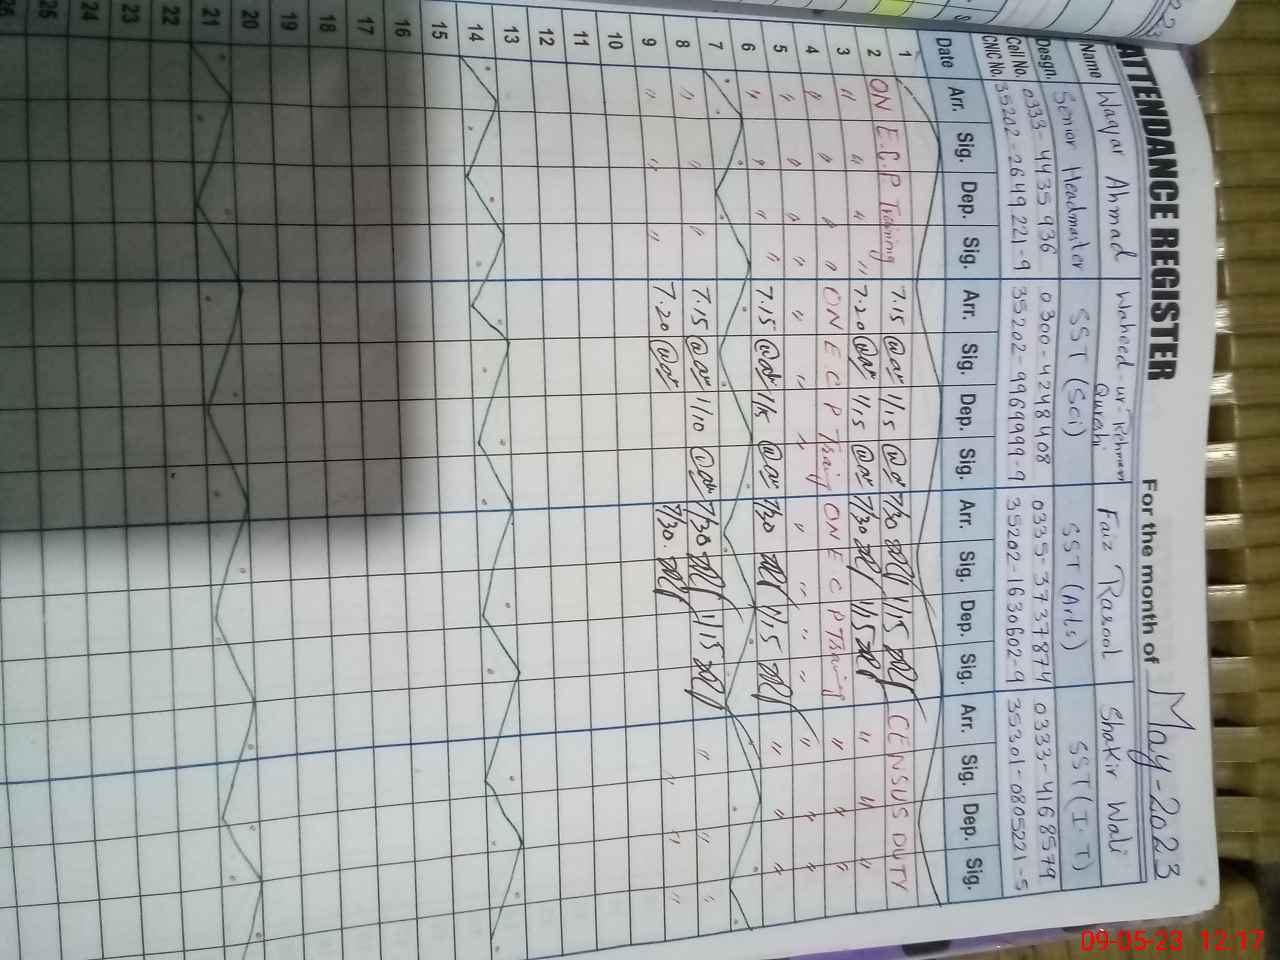 ATTENDANCE REGISTER For the month of May-2023
Name Waqar Ahmad Waheed-ur-Rehman Qurashi Faiz Rasool Shakir Wali
Desgn. Senior Headmaster SST (Sci) SST (Arts) SST (I.T)
Cell No. 0333-4435936 0300-4248408 0335-3737874 0333-4168579
CNIC No. 35202-2649221-9 35202-9969999-9 35202-1630602-9 35301-0805221-5
Date Arr. Sig. Dep. Sig. Arr. Sig. Dep. Sig. Arr. Sig. Dep. Sig. Arr. Sig. Dep. Sig.
1 ON E.C.P Training 7.15 1/15 7/30 1/15 CENSUS DUTY
2 " " " " 7.20 1/15 7/30 1/15 " " "
3 " " " " ON E C P Training ON E C P Training " " "
4 " " " " " " " " " " " " " "
5 " " " " 7.15 1/15 7/30 1/15 " " "
6
7 " " " 7.15 1/10 7/30 1/15 " " "
8 " " " 7.20 7/30 " " "
9
10
11
12
13
14
15
16
17
18
19
20
21
22
23
24
25
26
09-05-23 12:17